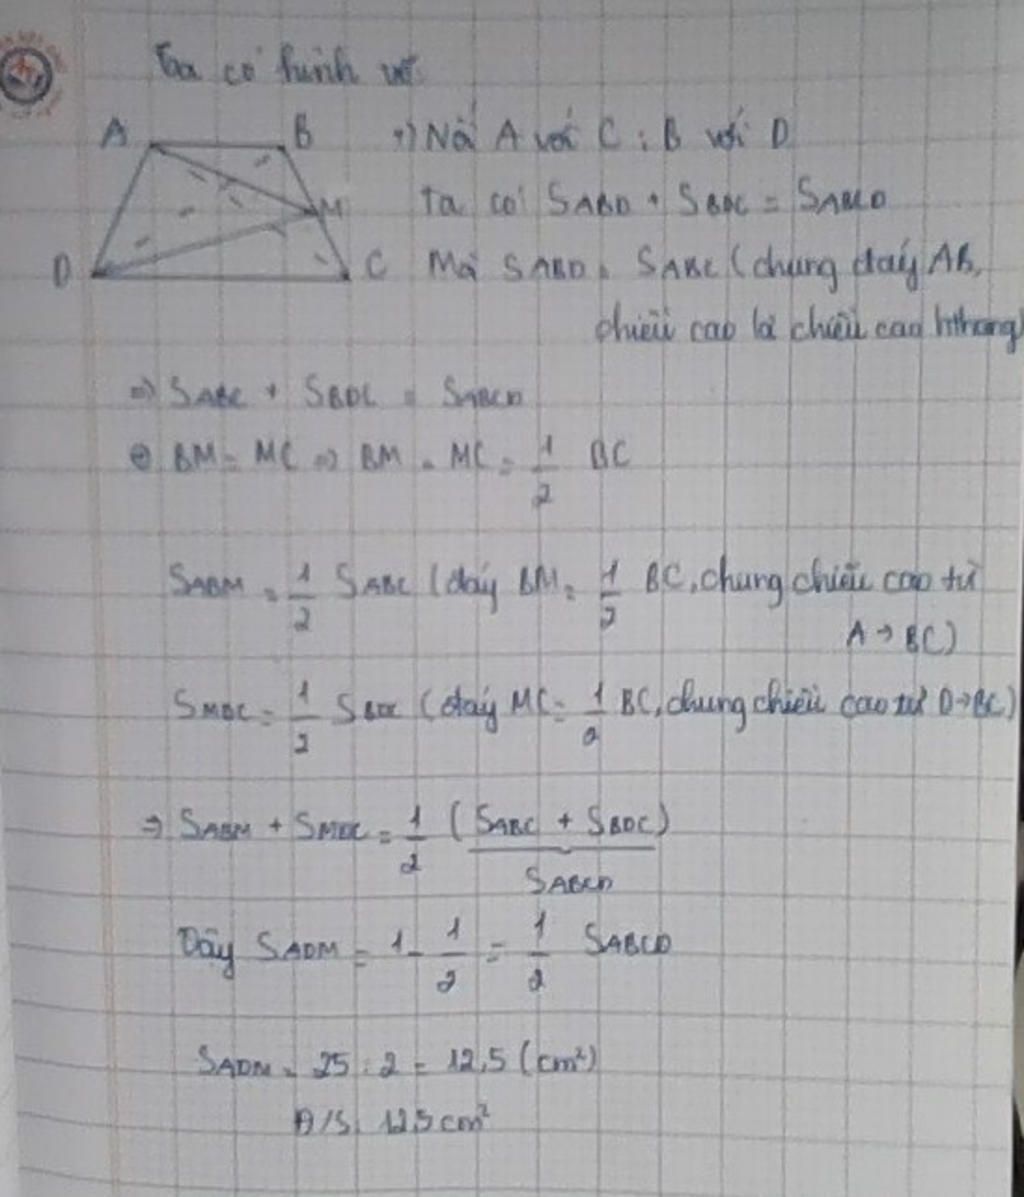 Ta có hình vẽ
A B
M
D C
+) Nối A với C; B với D
Ta có SABD + SBDC = SABCD
Mà SABD = SABC (chung đáy AB,
chiều cao là chiều cao hthang)
=> SABC + SBDC = SABCD
BM = MC => BM = MC = 1/2 BC
SABM = 1/2 SABC (đáy BM = 1/2 BC, chung chiều cao từ
A → BC)
SMDC = 1/2 SBDC (đáy MC = 1/2 BC, chung chiều cao từ D → BC)
=> SABM + SMDC = 1/2 (SABC + SBDC)
SABCD
Vậy SADM = 1 - 1/2 = 1/2 SABCD
SADM = 25 : 2 = 12,5 (cm²)
Đ/S: 12,5 cm²